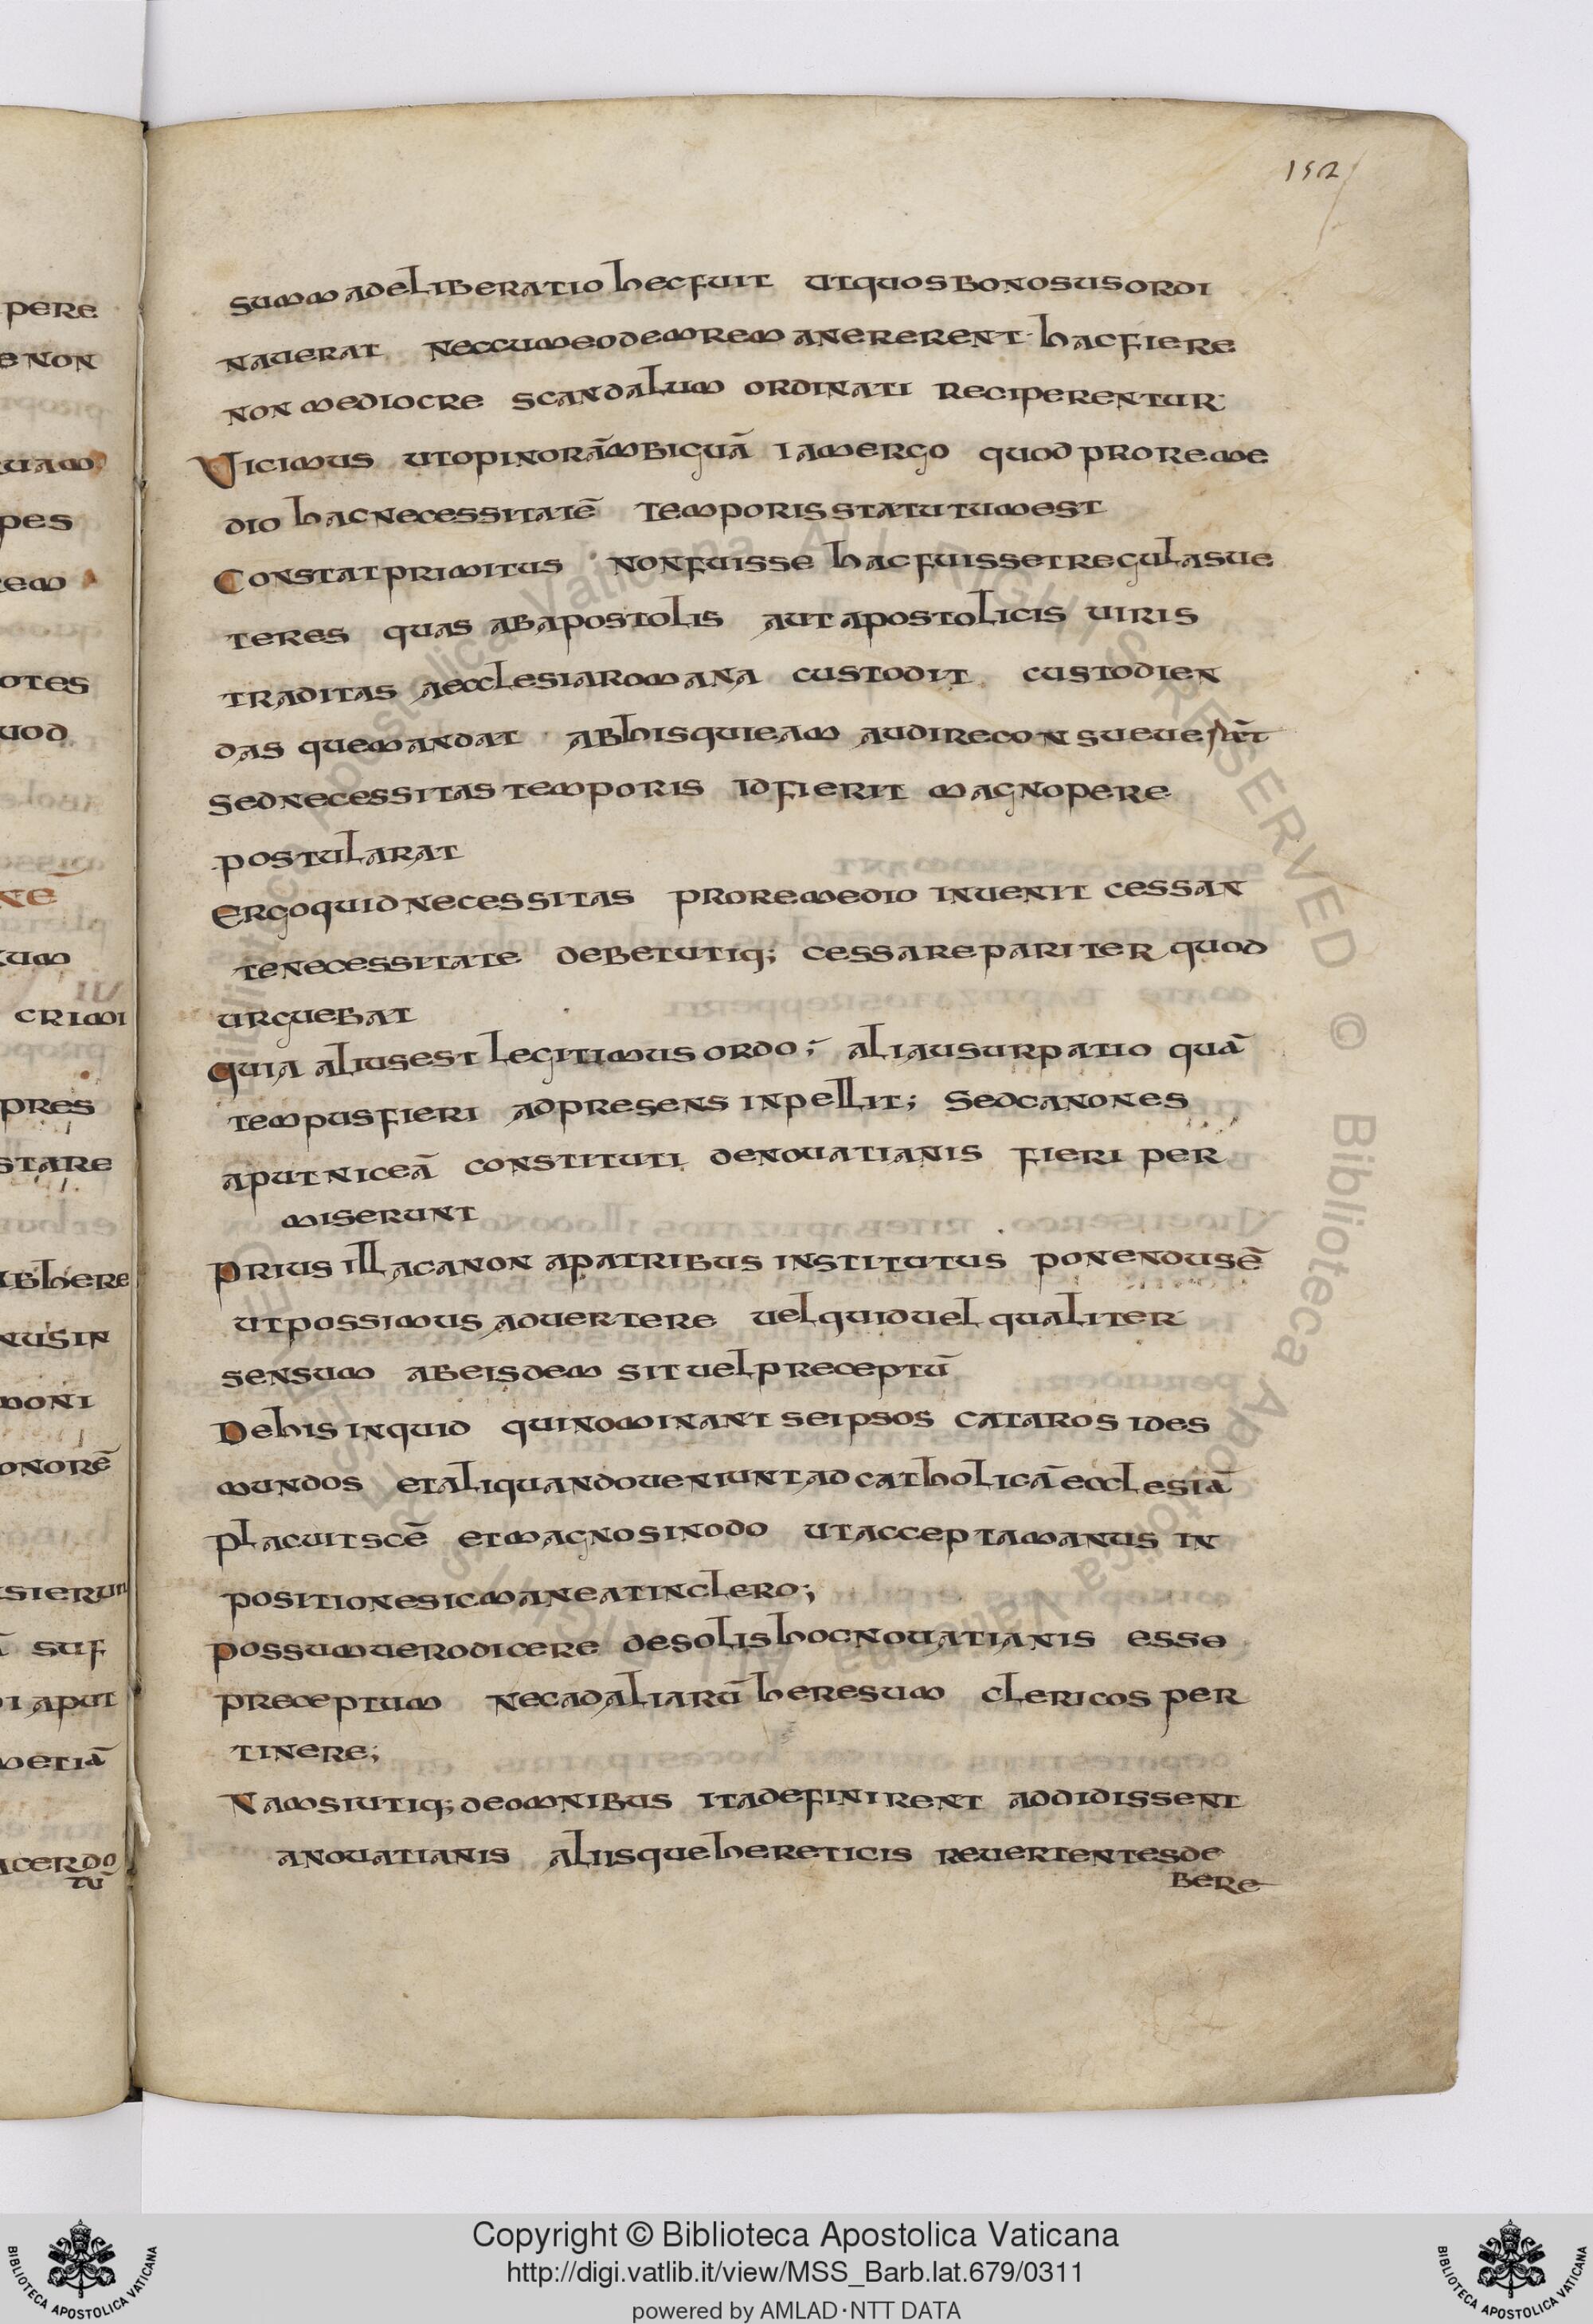 152
pere
e non
uam
pes
rem
otes
uod
ne
tum
crimi
pres
stare
abhere
nusin
moni
onorē
sierun
suf
i aput
metiā
acerdo
tū
summadeliberatiohecfuit utquosbonosusordi
nauerat neccumeodemremanererent hacfiere
nonmediocre scandalum ordinati reciperentur
Uicimus utopinorāmbiguā iamergo quodproreme
dio hacnecessitatē temporisstatutumest
Constatprimitus nonfuisse hacfuissetregulasue
teres quas abapostolis aut apostolicis uiris
traditas aecclesiaromana custodit custodien
das quemandat abhisquieam audireconsueuerūt
sednecessitastemporis idfierit magnopere
postularat
Ergoquidnecessitas proremedio inuenit cessan
tenecessitate debetutiq; cessarepariter quod
urguebat
quia aliusest legitimus ordo; aliausurpatio quā
tempusfieri adpresens inpellit; sedcanones
aputniceā constituti denouatianis fieri per
miserunt
Prius illacanon apatribus institutus ponendusē
utpossimus aduertere uelquiduel qualiter
sensum abeisdem sit uelpreceptū
Dehisinquid quinominant seipsos cataros ides
mundos etaliquandoueniuntadcatholicāecclesiā
placuitscē etmagnosinodo utacceptamanus in
positionesicmaneatinclero;
possumuerodicere desolishocnouatianis esse
preceptum necadaliarū heresum clericos per
tinere;
Namsiutiq; deomnibus itadefinirent addidissent
anouatianis aliisquehereticis reuertentesde
bere
Copyright © Biblioteca Apostolica Vaticana
http://digi.vatlib.it/view/MSS_Barb.lat.679/0311
powered by AMLAD·NTT DATA
BIBLIOTECA APOSTOLICA VATICANA
BIBLIOTECA APOSTOLICA VATICANA